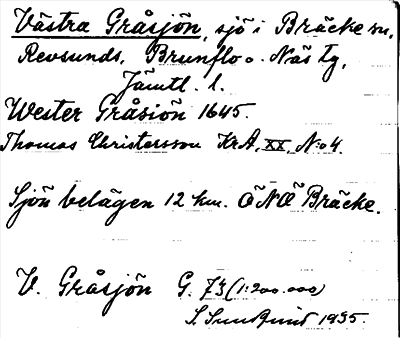 Västra Gråsjön, sjö i Bräcke sn,
Revsunds, Brunflo o. Näs tg,
Jämtl. l.
Wester Gråsiön 1645.
Thomas Christersson KrA, XX, N:o 4.
Sjön belägen 12 km. ÖNÖ Bräcke.
V. Gråsjön G. 73 (1:200.000)
S. Sundkvist 1935.